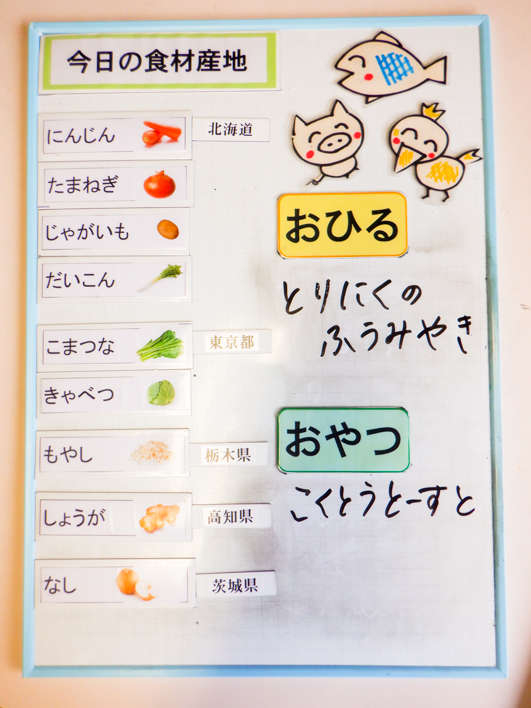 今日の食材産地
にんじん 北海道
たまねぎ
じゃがいも
だいこん
こまつな 東京都
きゃべつ
もやし 栃木県
しょうが 高知県
なし 茨城県
おひる
とりにくの
ふうみやき
おやつ
こくとうとーすと